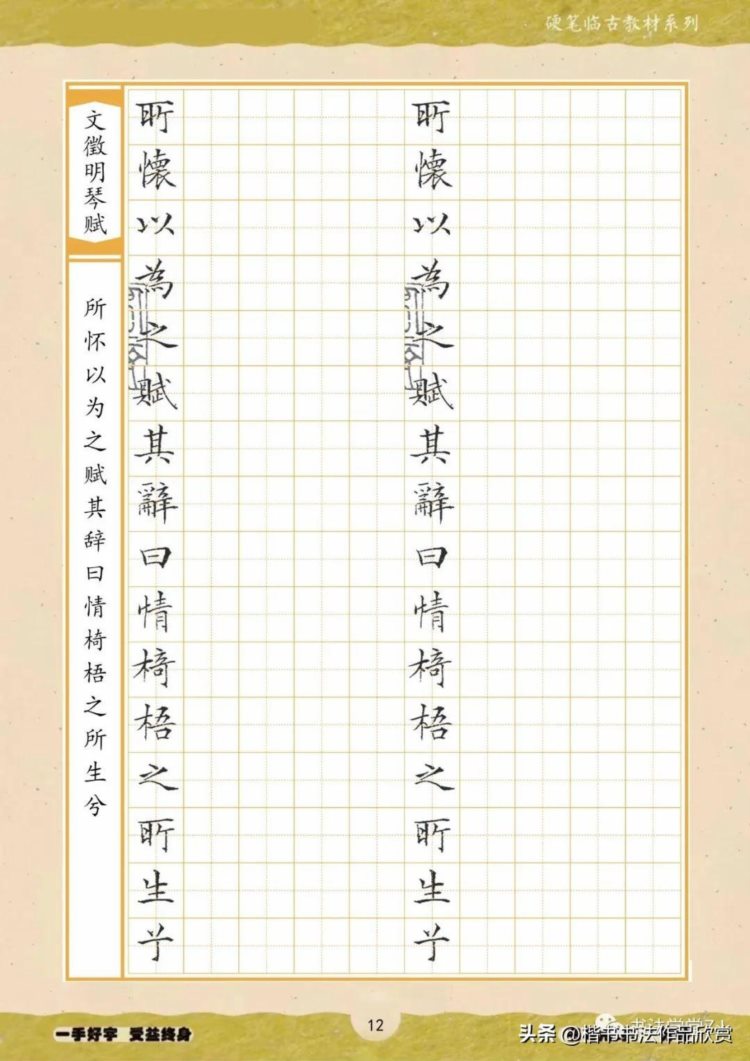 硬笔临古教材系列
文徵明琴赋
所怀以为之赋其辞曰情椅梧之所生兮
所懷以為之賦其辭曰情椅梧之所生兮
所懷以為之賦其辭曰情椅梧之所生兮
12
一手好字 受益终身
头条 @楷书书法作品欣赏